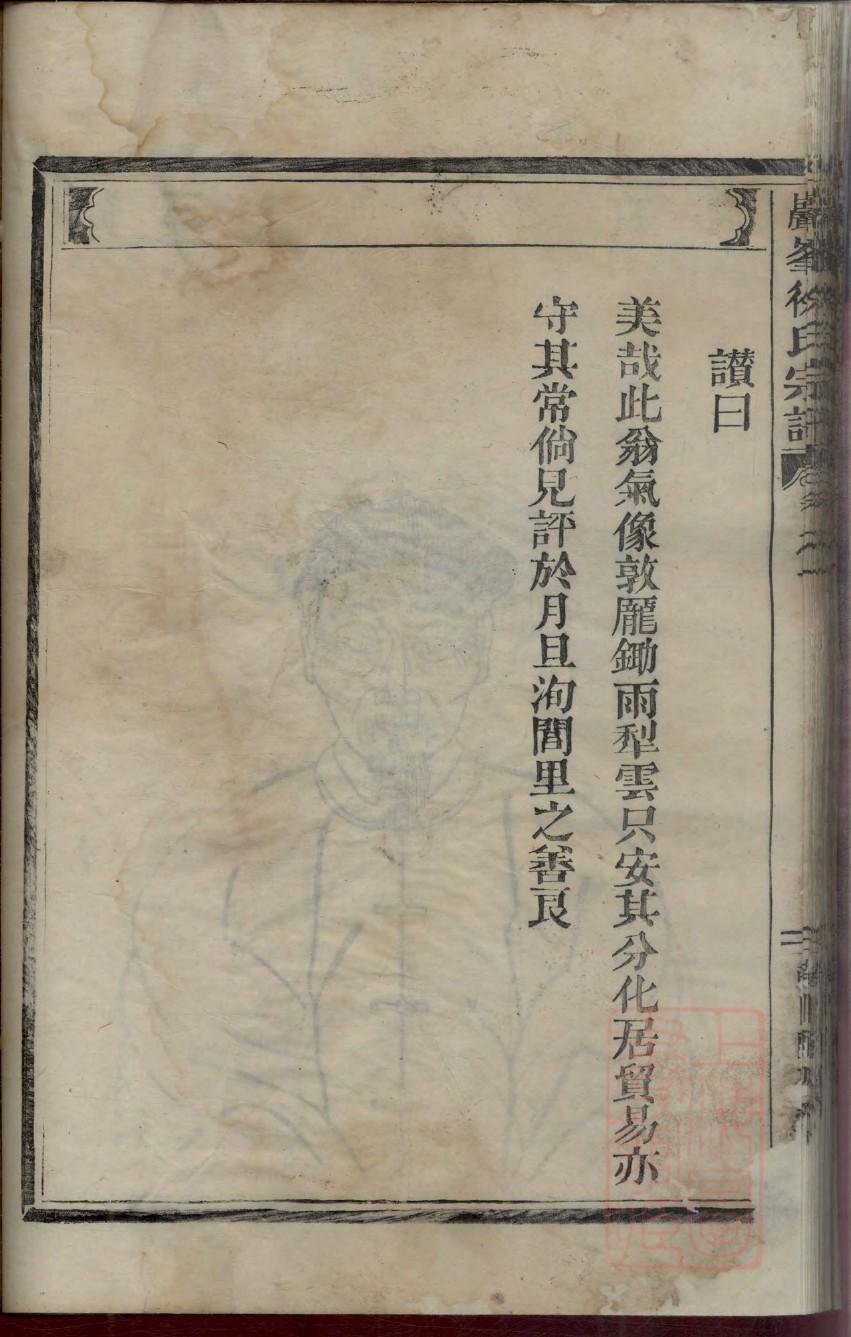 巖峯徐氏宗譜
讃曰
美哉此翁氣像敦龎鋤雨犁雲只安其分化居貿易亦
守其常倘見評於月旦洵閭里之善良